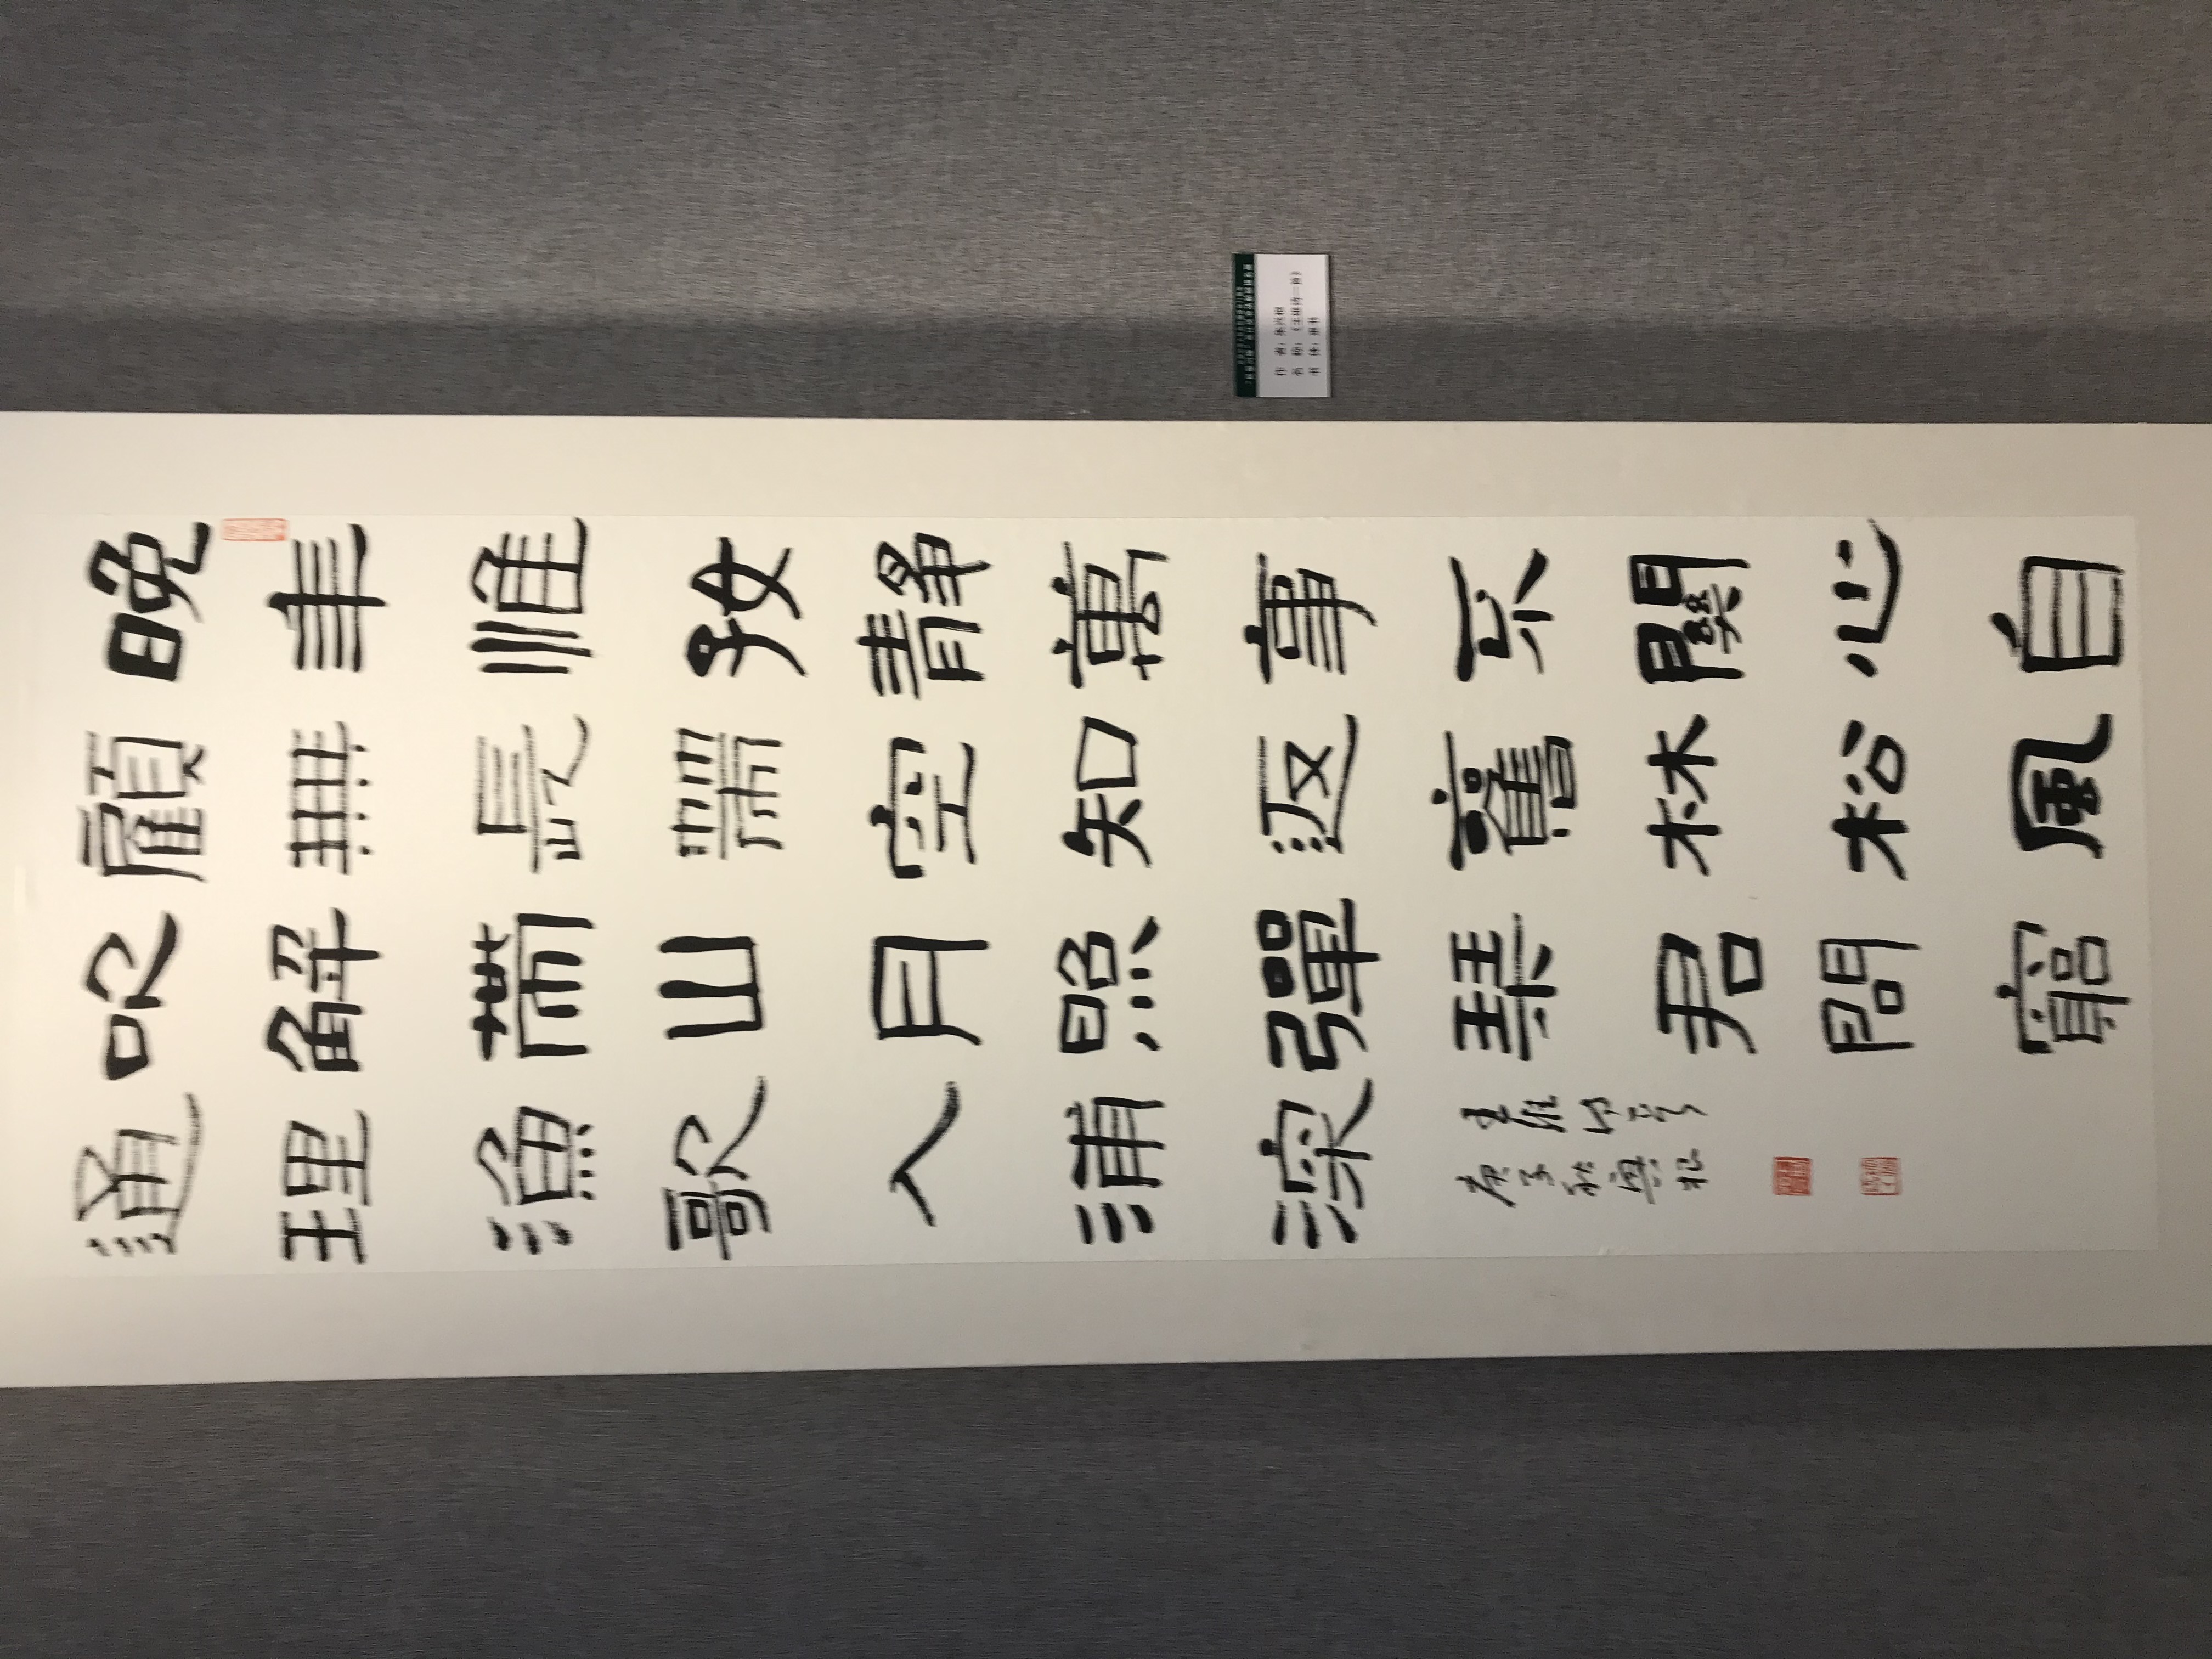 晚年惟好靜萬事不關心自
顧無長策空知返舊林松風
吹解帶山月照彈琴君問窮
通理漁歌入浦深
王維詩一首
庚子秋興根
作 者：
名 称：《王维诗一首》
书 体：隶书